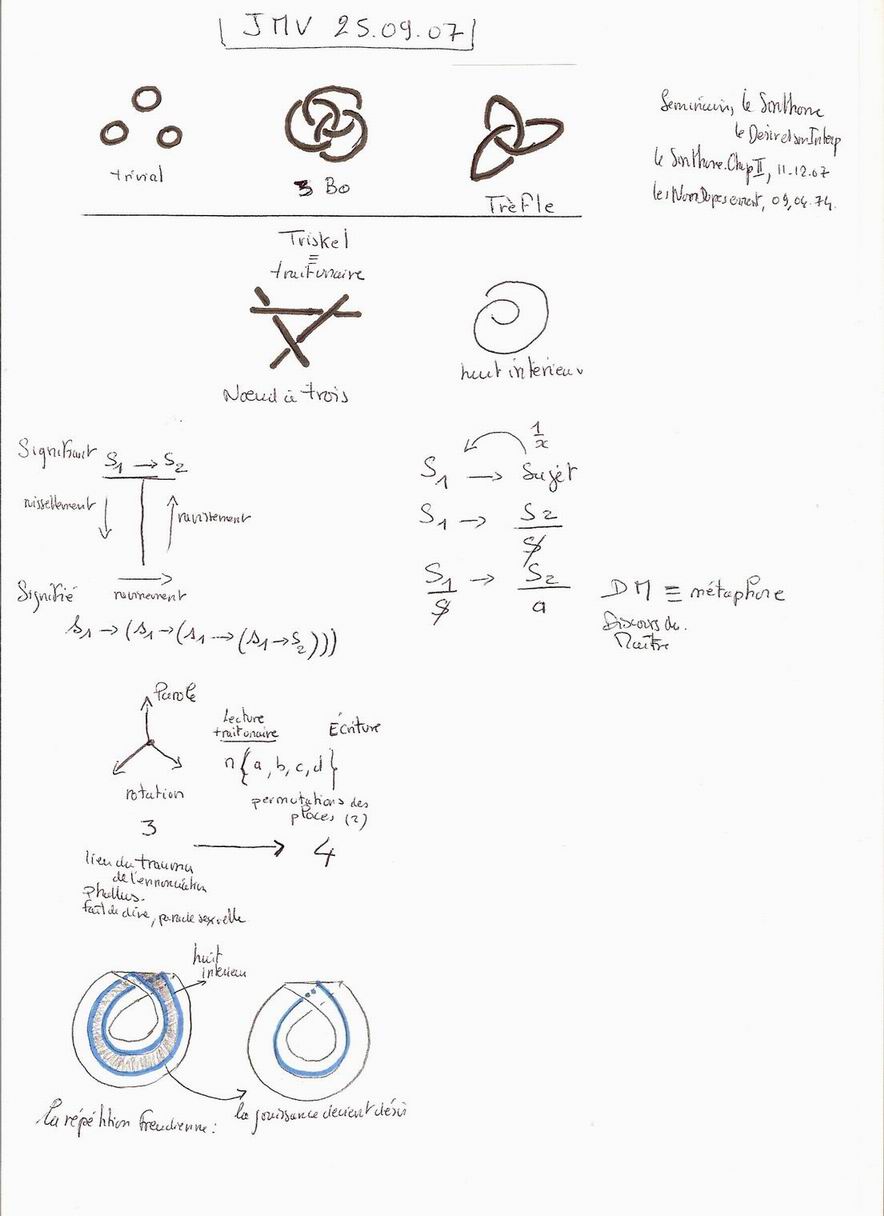 JMV 25.09.07
trivial
3 Bo
Trèfle
Seminaires, le Sinthome
le Desir et son Interp
le Sinthome. Chap II, 11.12.07
les Non Dupes errent, 09,04.74.
Triskel
≡
trait unaire
Nœud à trois
huit intérieur
Signifiant S1 → S2
ruissellement
ravissement
Signifié
S1 → (S1 → (S1 → (S1 → S2)))
1/x
S1 → Sujet
S1 → S2/$
S1/$ → S2/a
DM ≡ métaphore
Discours du
Maître
Parole
rotation
3
Lecture
trait unaire
Écriture
n{a, b, c, d}
permutations des
places (2)
4
lieu du trauma
de l'ennonciation
phallus.
fait de dire, parade sexuelle
huit
intérieur
la répétition Freudienne :
la jouissance devient désir